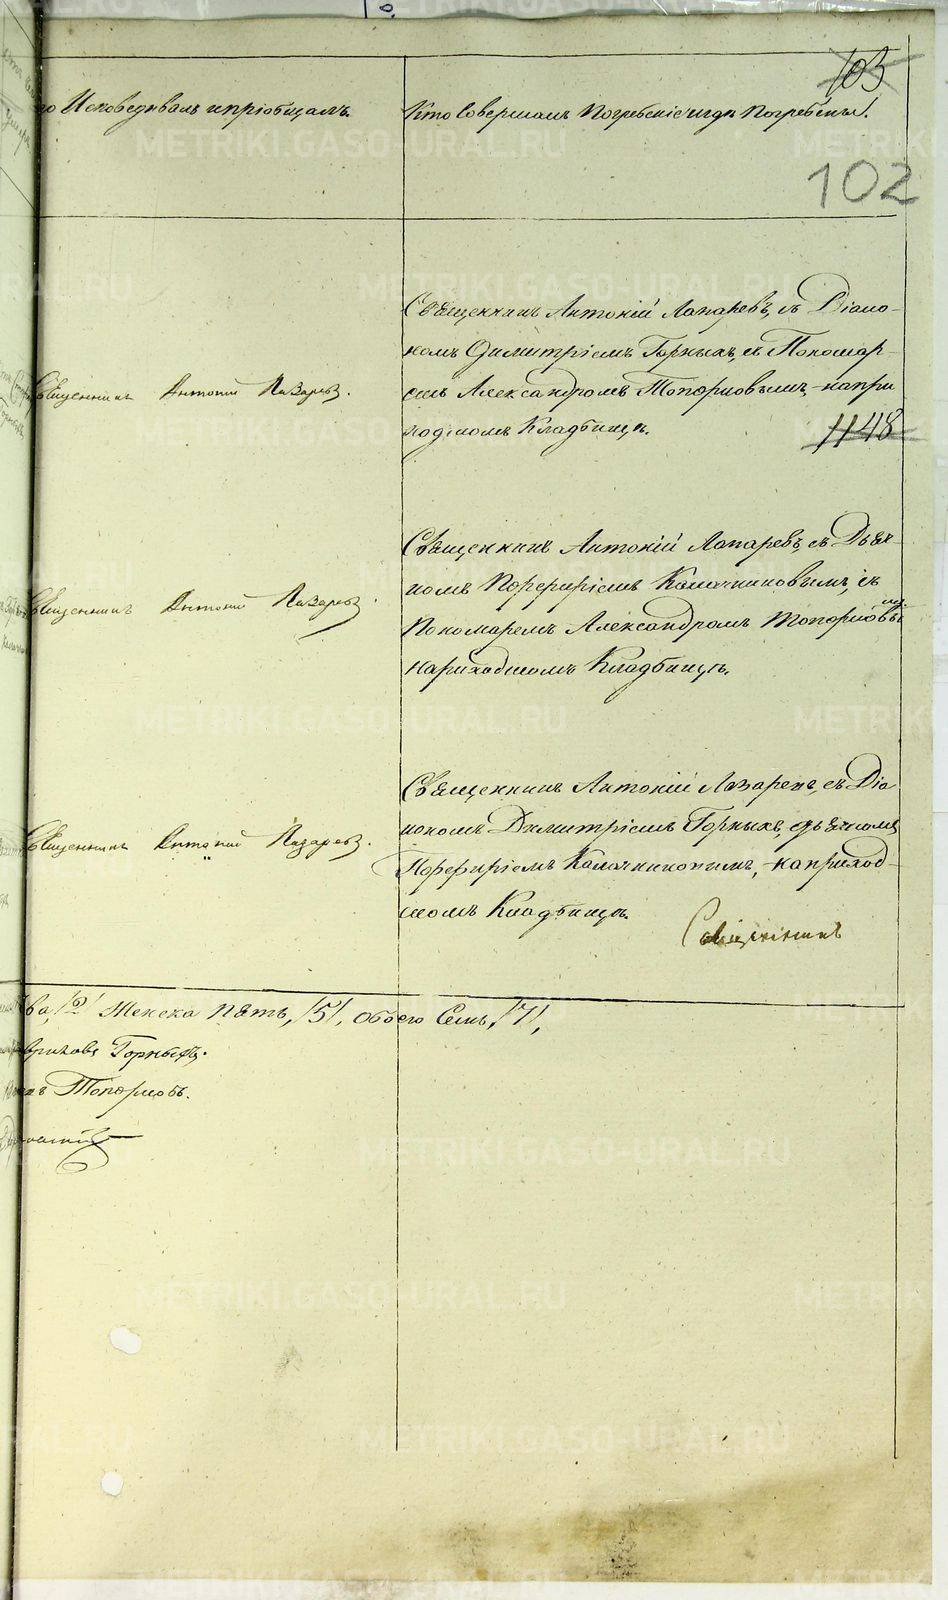 103
го Исповедивалъ и пріобщалъ.
Кто Совершалъ Погребеніе и где Погребены.
102
Священникъ Антоній Лазаревъ.
Священникъ Антоній Лазаревъ, съ Діако-
номъ Димитріемъ Горныхъ, съ Пономар-
емъ Александромъ Топорковымъ, на при
ходскомъ Кладбищѣ.
1148
Священникъ Антоній Лазаревъ.
Священникъ Антоній Лазаревъ, съ Дьяч-
комъ Порфиріемъ Калачниковымъ, съ
Пономаремъ Александромъ Топорковы
мъ
на приходскомъ Кладбищѣ.
Священникъ Антоній Лазаревъ.
Священникъ Антоній Лазаревъ, съ Діа
кономъ Димитріемъ Горныхъ, дьячкомъ
Порфиріемъ Калачниковымъ, на приход-
скомъ Кладбищѣ.
Священникъ
ва, /2/ Женска Пять, /5/, обоего Семь, /7/,
Горныхъ.
Топорковъ.
METRIKI.GASO-URAL.RU